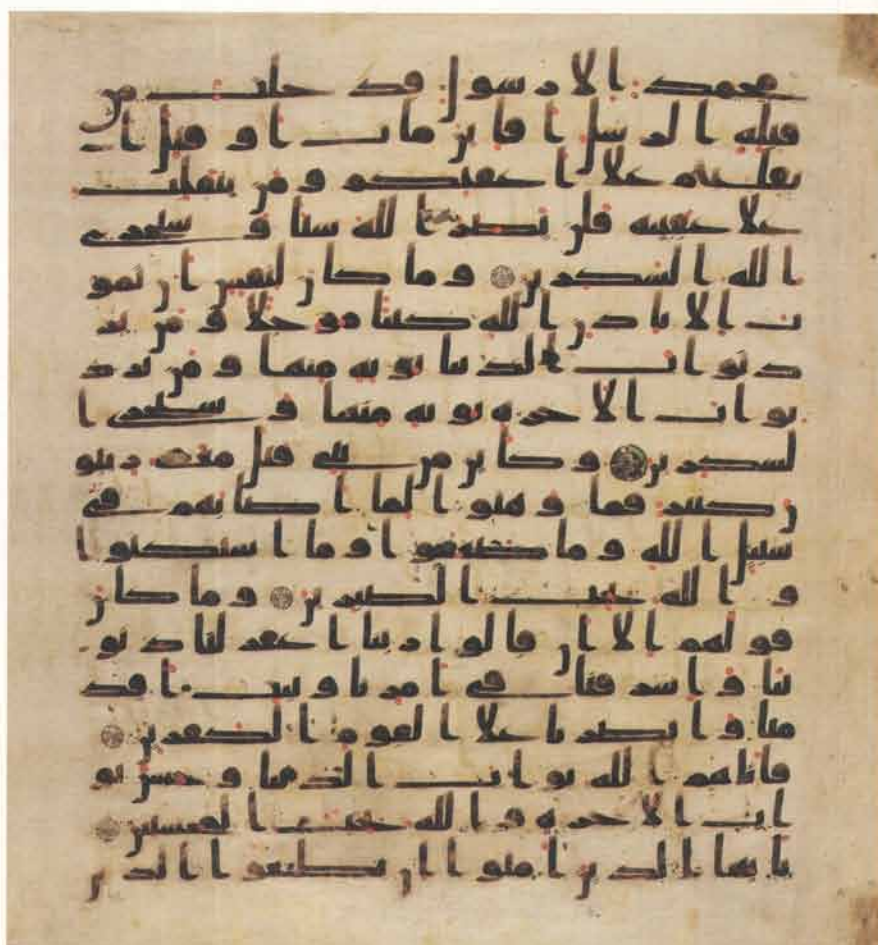 محمد الا رسول قد خلت من
قبله الرسل افاين مات او قتل ا
نقلبتم علا اعقبكم ومن ينقلب
علا عقبيه فلن يضر الله شيا وسيجزى
الله الشكرين وما كان لنفس ان تمو
ت الا باذن الله كتبا موجلا ومن ير
د ثواب الدنيا نوته منها ومن يرد
ثواب الاخره نوته منها وسنجزى ا
لشكرين وكاين من نبى قتل معه ربيو
ن كثير فما وهنوا لما اصابهم فى
سبيل الله وما ضعفوا وما استكنوا
والله يحب الصبرين وما كان
قولهم الا ان قالوا ربنا اغفر لنا ذنو
بنا واسرفنا فى امرنا وثبت اقد
منا وانصرنا علا القوم الكفرين
فاتاهم الله ثواب الدنيا وحسن ثو
اب الاخره والله يحب المحسنين
يايها الذين امنوا ان تطيعوا الذين